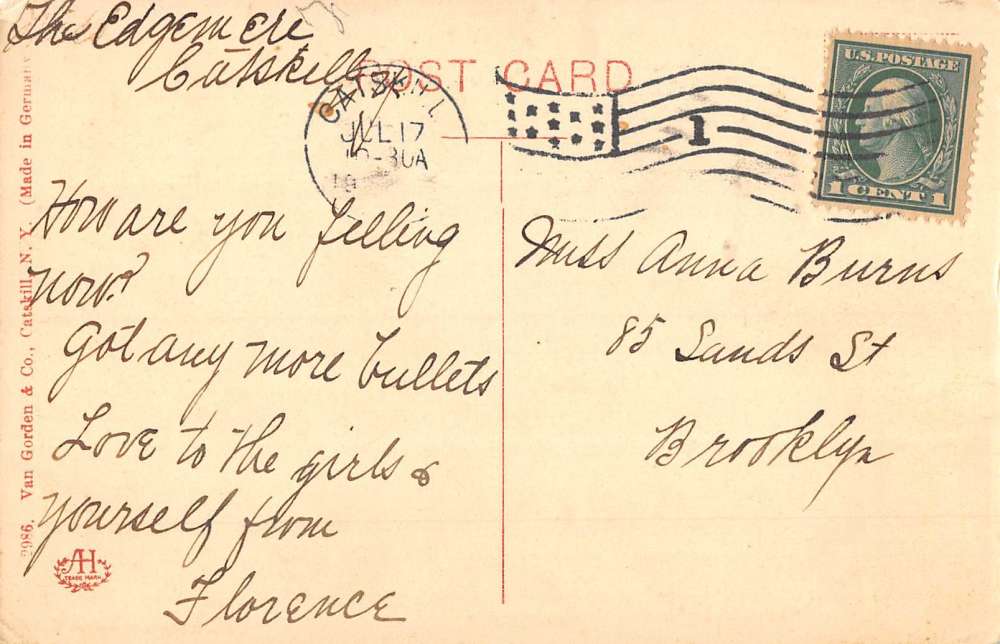 The Edgemere
Catskill
POST CARD
CATSKILL
JUL 17
-30A
19
1
U.S. POSTAGE
1 CENT 1
How are you felling
now?
Got any more bullets
Love to the girls &
yourself from
Florence
Miss Anna Burns
85 Sands St
Brooklyn
2986. Van Gorden & Co., Catskill, N. Y. (Made in Germany
AH
TRADE MARK